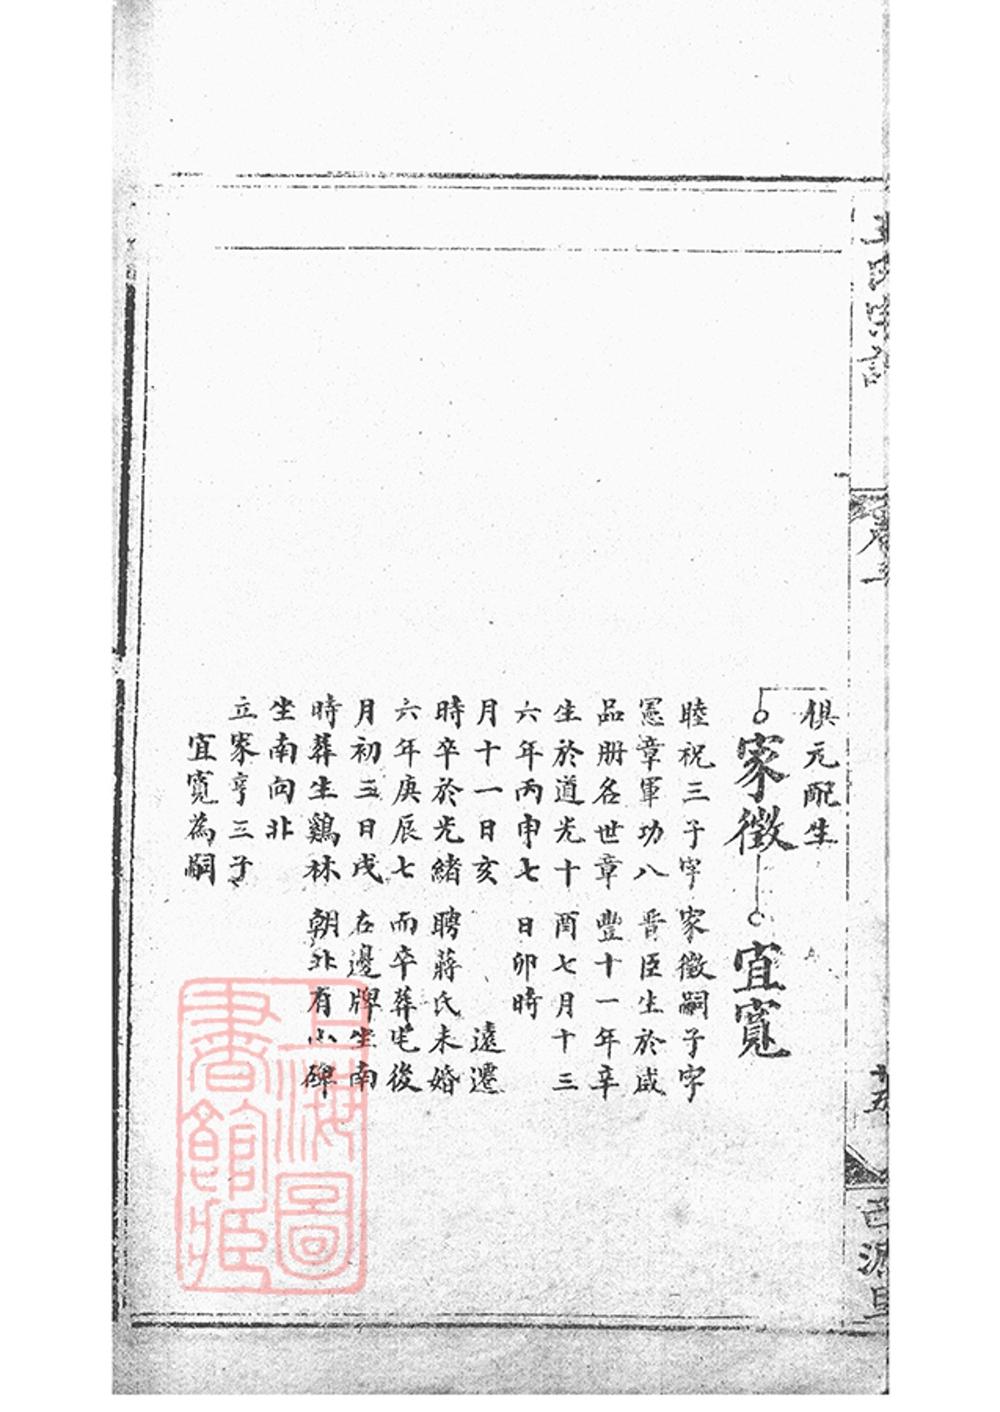 俱元配生
家徵
睦祝三子字
憲章軍功八
品册名世章
生於道光十
六年丙申七
月十一日亥
時卒於光緒
六年庚辰七
月初三日戌
時葬生鷄林
坐南向北
立家亨三子
宜寬為嗣
宜寬
家徵嗣子字
晋臣生於咸
豐十一年辛
酉七月十三
日卯時
遠遷
聘蔣氏未婚
而卒葬宅後
左邊牌坐南
朝北有小碑
十五
上海圖
書館藏